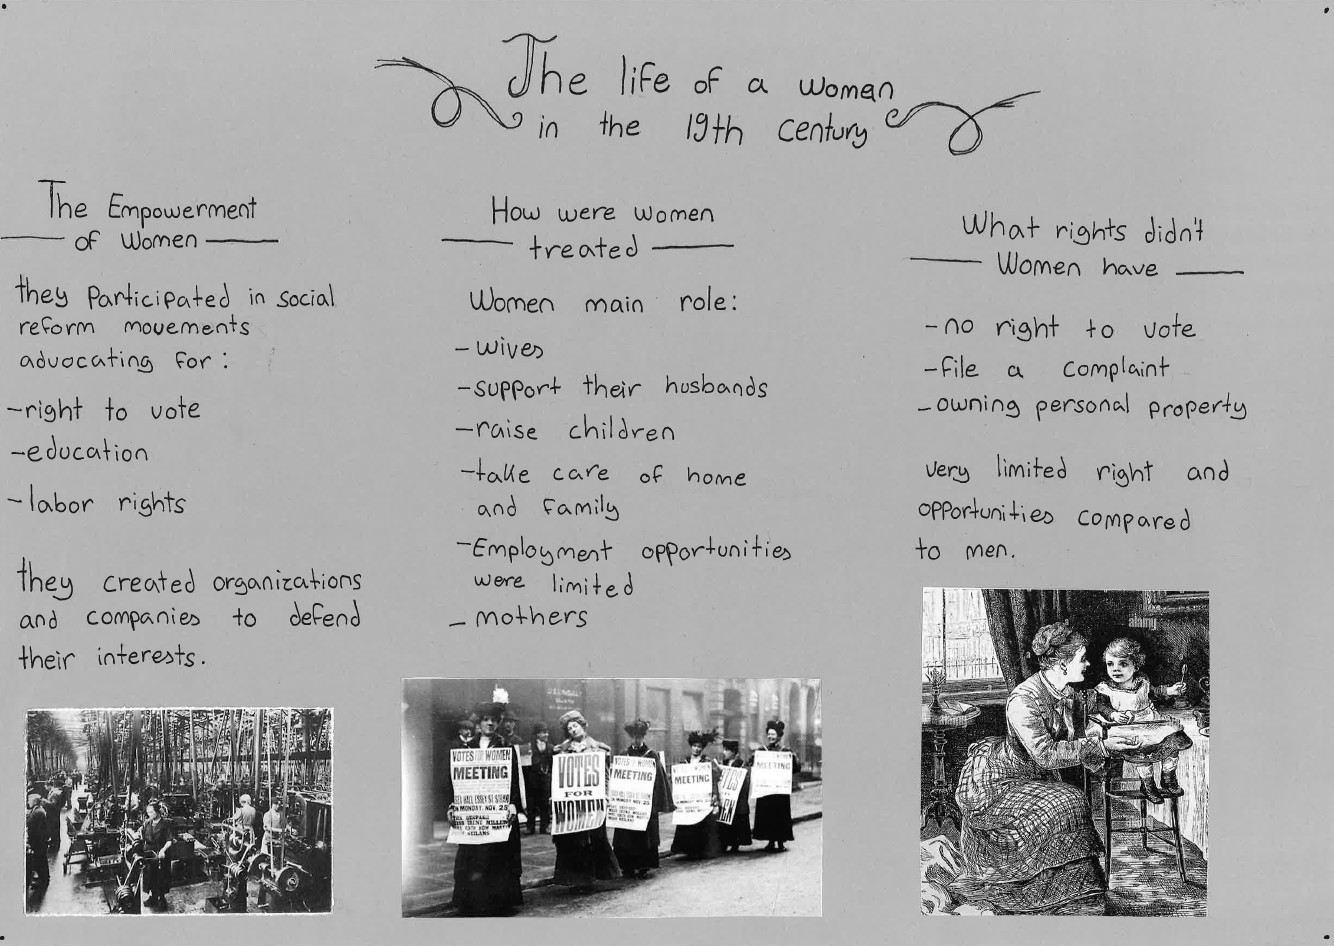 The life of a woman
in the 19th century
The Empowerment
of Women
they participated in social
reform movements
advocating for:
-right to vote
-education
-labor rights
they created organizations
and companies to defend
their interests.
How were women
treated
Women main role:
-wives
-support their husbands
-raise children
-take care of home
and family
-Employment opportunities
were limited
-mothers
VOTES FOR WOMEN
MEETING
VOTES
FOR
WOMEN
MEETING
MEETING
MEETING
What rights didn't
Women have
-no right to vote
-file a complaint
-owning personal property
very limited right and
opportunities compared
to men.